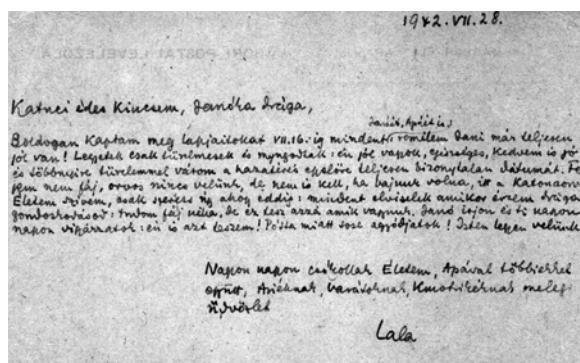 1942.VII.28.
Katuci édes Kincsem, Jancka drága,
Janit, Apát is;
Boldogan kaptam meg lapjaitokat VII.16.-ig mindent, remélem Jani már teljesen
jól van! Legyetek csak türelmesek és nyugodtak: én jól vagyok, egészséges, kedvem is jó
és többnyire türelemmel várom a hazatérés egyelőre teljesen bizonytalan dátumát. Fo
gam nem fáj, orvos nincs velünk, de nem is kell, ha bajunk volna, itt a Katonaorv
Életem szívem, csak szeress úgy ahogy eddig: mindent elviselek amikor érzem drága
gondoskodásod: tudom fáj néha, de ez tesz azzá amik vagyunk. Janó írjon és ti napon
napon vigyázzatok: én is azt teszem! Posta miatt sose aggódjatok! Isten legyen velünk
Napon napon csókollak Életem, Apával többiekkel
együtt, barátoknak, meleg
üdvözlet
Lala